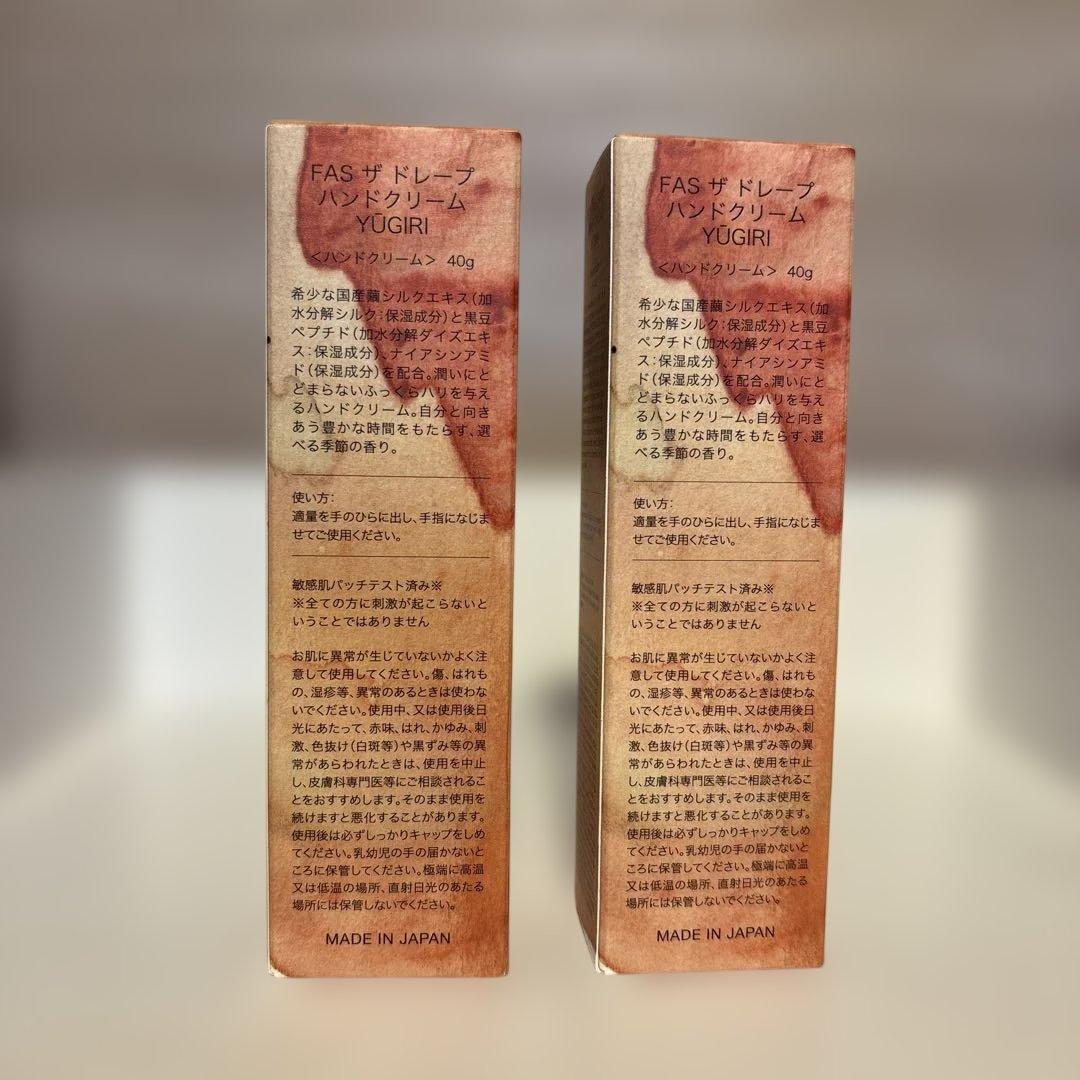 FAS ザ ドレープ
ハンドクリーム
YŪGIRI
＜ハンドクリーム＞ 40g
希少な国産繭シルクエキス（加
水分解シルク：保湿成分）と黒豆
ペプチド（加水分解ダイズエキ
ス：保湿成分）、ナイアシンアミ
ド（保湿成分）を配合。潤いにと
どまらないふっくらハリを与え
るハンドクリーム。自分と向き
あう豊かな時間をもたらす、選
べる季節の香り。
使い方：
適量を手のひらに出し、手指になじま
せてご使用ください。
敏感肌パッチテスト済み※
※全ての方に刺激が起こらないと
いうことではありません
お肌に異常が生じていないかよく注
意して使用してください。傷、はれも
の、湿疹等、異常のあるときは使わな
いでください。使用中、又は使用後日
光にあたって、赤味、はれ、かゆみ、刺
激、色抜け（白斑等）や黒ずみ等の異
常があらわれたときは、使用を中止
し、皮膚科専門医等にご相談されるこ
とをおすすめします。そのまま使用を
続けますと悪化することがあります。
使用後は必ずしっかりキャップをしめ
てください。乳幼児の手の届かないと
ころに保管してください。極端に高温
又は低温の場所、直射日光のあたる
場所には保管しないでください。
MADE IN JAPAN
FAS ザ ドレープ
ハンドクリーム
YŪGIRI
＜ハンドクリーム＞ 40g
希少な国産繭シルクエキス（加
水分解シルク：保湿成分）と黒豆
ペプチド（加水分解ダイズエキ
ス：保湿成分）、ナイアシンアミ
ド（保湿成分）を配合。潤いにと
どまらないふっくらハリを与え
るハンドクリーム。自分と向き
あう豊かな時間をもたらす、選
べる季節の香り。
使い方：
適量を手のひらに出し、手指になじま
せてご使用ください。
敏感肌パッチテスト済み※
※全ての方に刺激が起こらないと
いうことではありません
お肌に異常が生じていないかよく注
意して使用してください。傷、はれも
の、湿疹等、異常のあるときは使わな
いでください。使用中、又は使用後日
光にあたって、赤味、はれ、かゆみ、刺
激、色抜け（白斑等）や黒ずみ等の異
常があらわれたときは、使用を中止
し、皮膚科専門医等にご相談されるこ
とをおすすめします。そのまま使用を
続けますと悪化することがあります。
使用後は必ずしっかりキャップをしめ
てください。乳幼児の手の届かないと
ころに保管してください。極端に高温
又は低温の場所、直射日光のあたる
場所には保管しないでください。
MADE IN JAPAN